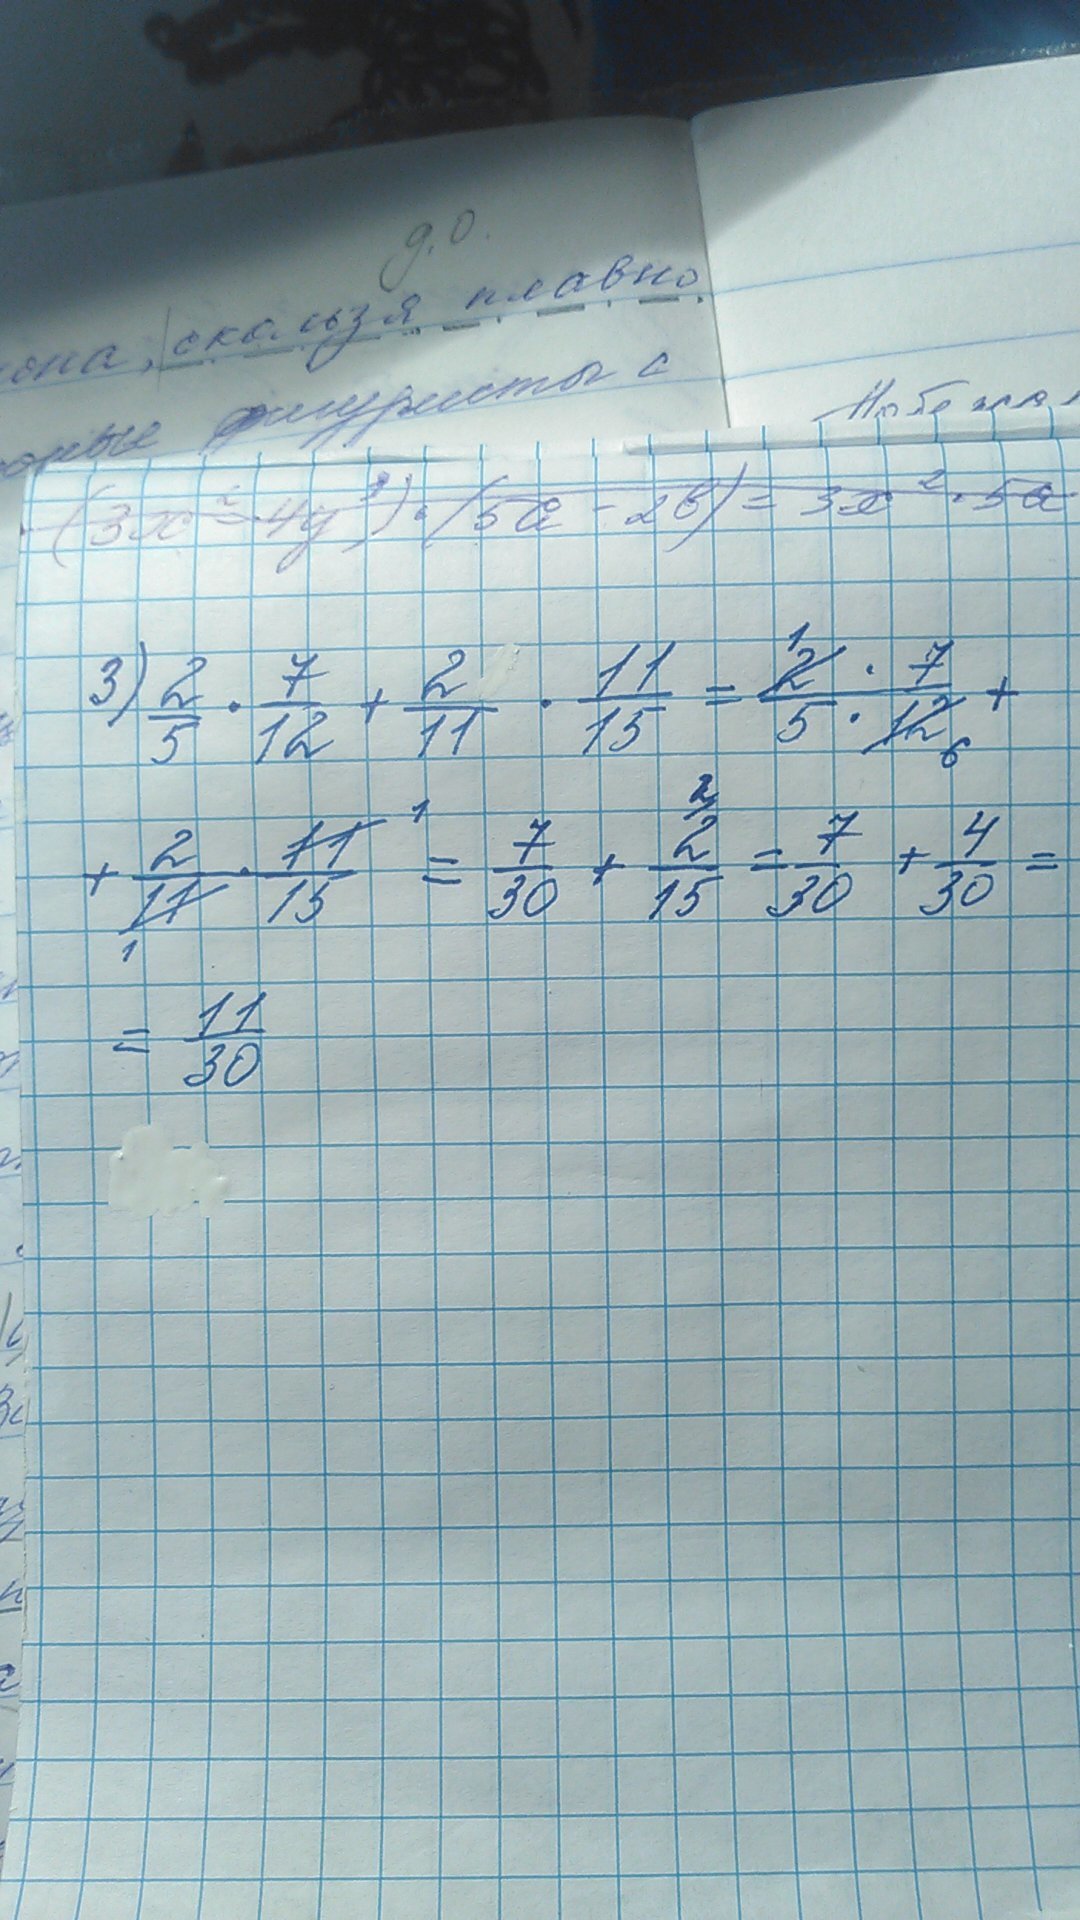 д.о.
скользя плавно
фигуристы с
(3x² - 4y³) · (5a - 2b) = 3x² · 5a
3) 2/5 · 7/12 + 2/11 · 11/15 = 2 1 · 7 / 5 · 12 6 +
+ 2/11 1 · 11 1/15 = 7/30 + 2 2/15 = 7/30 + 4/30 =
= 11/30